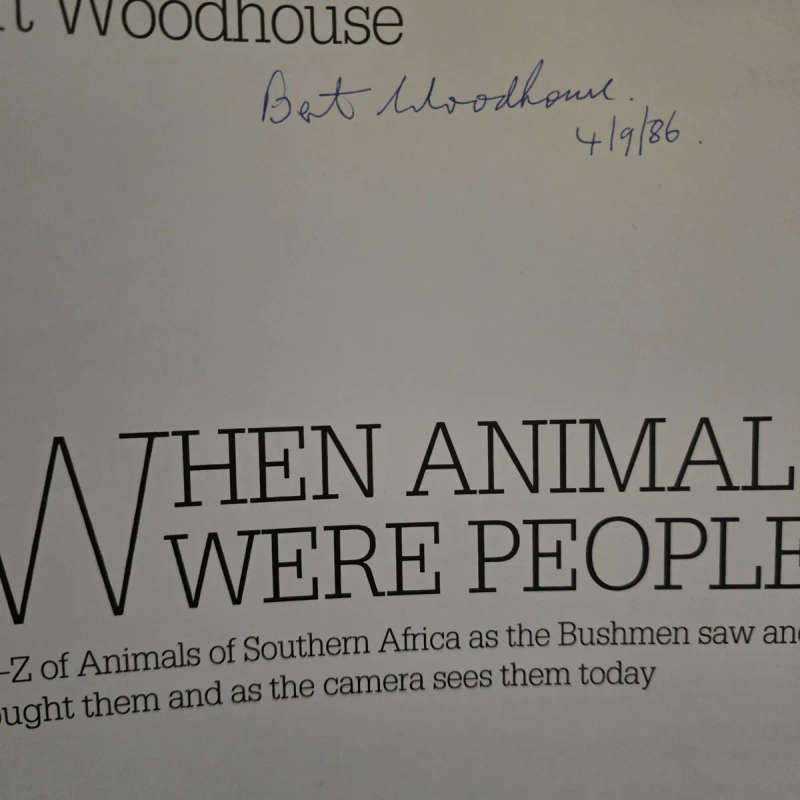 t Woodhouse
Bert Woodhouse.
4/9/86.
WHEN ANIMAL
WERE PEOPLE
-Z of Animals of Southern Africa as the Bushmen saw and
ought them and as the camera sees them today